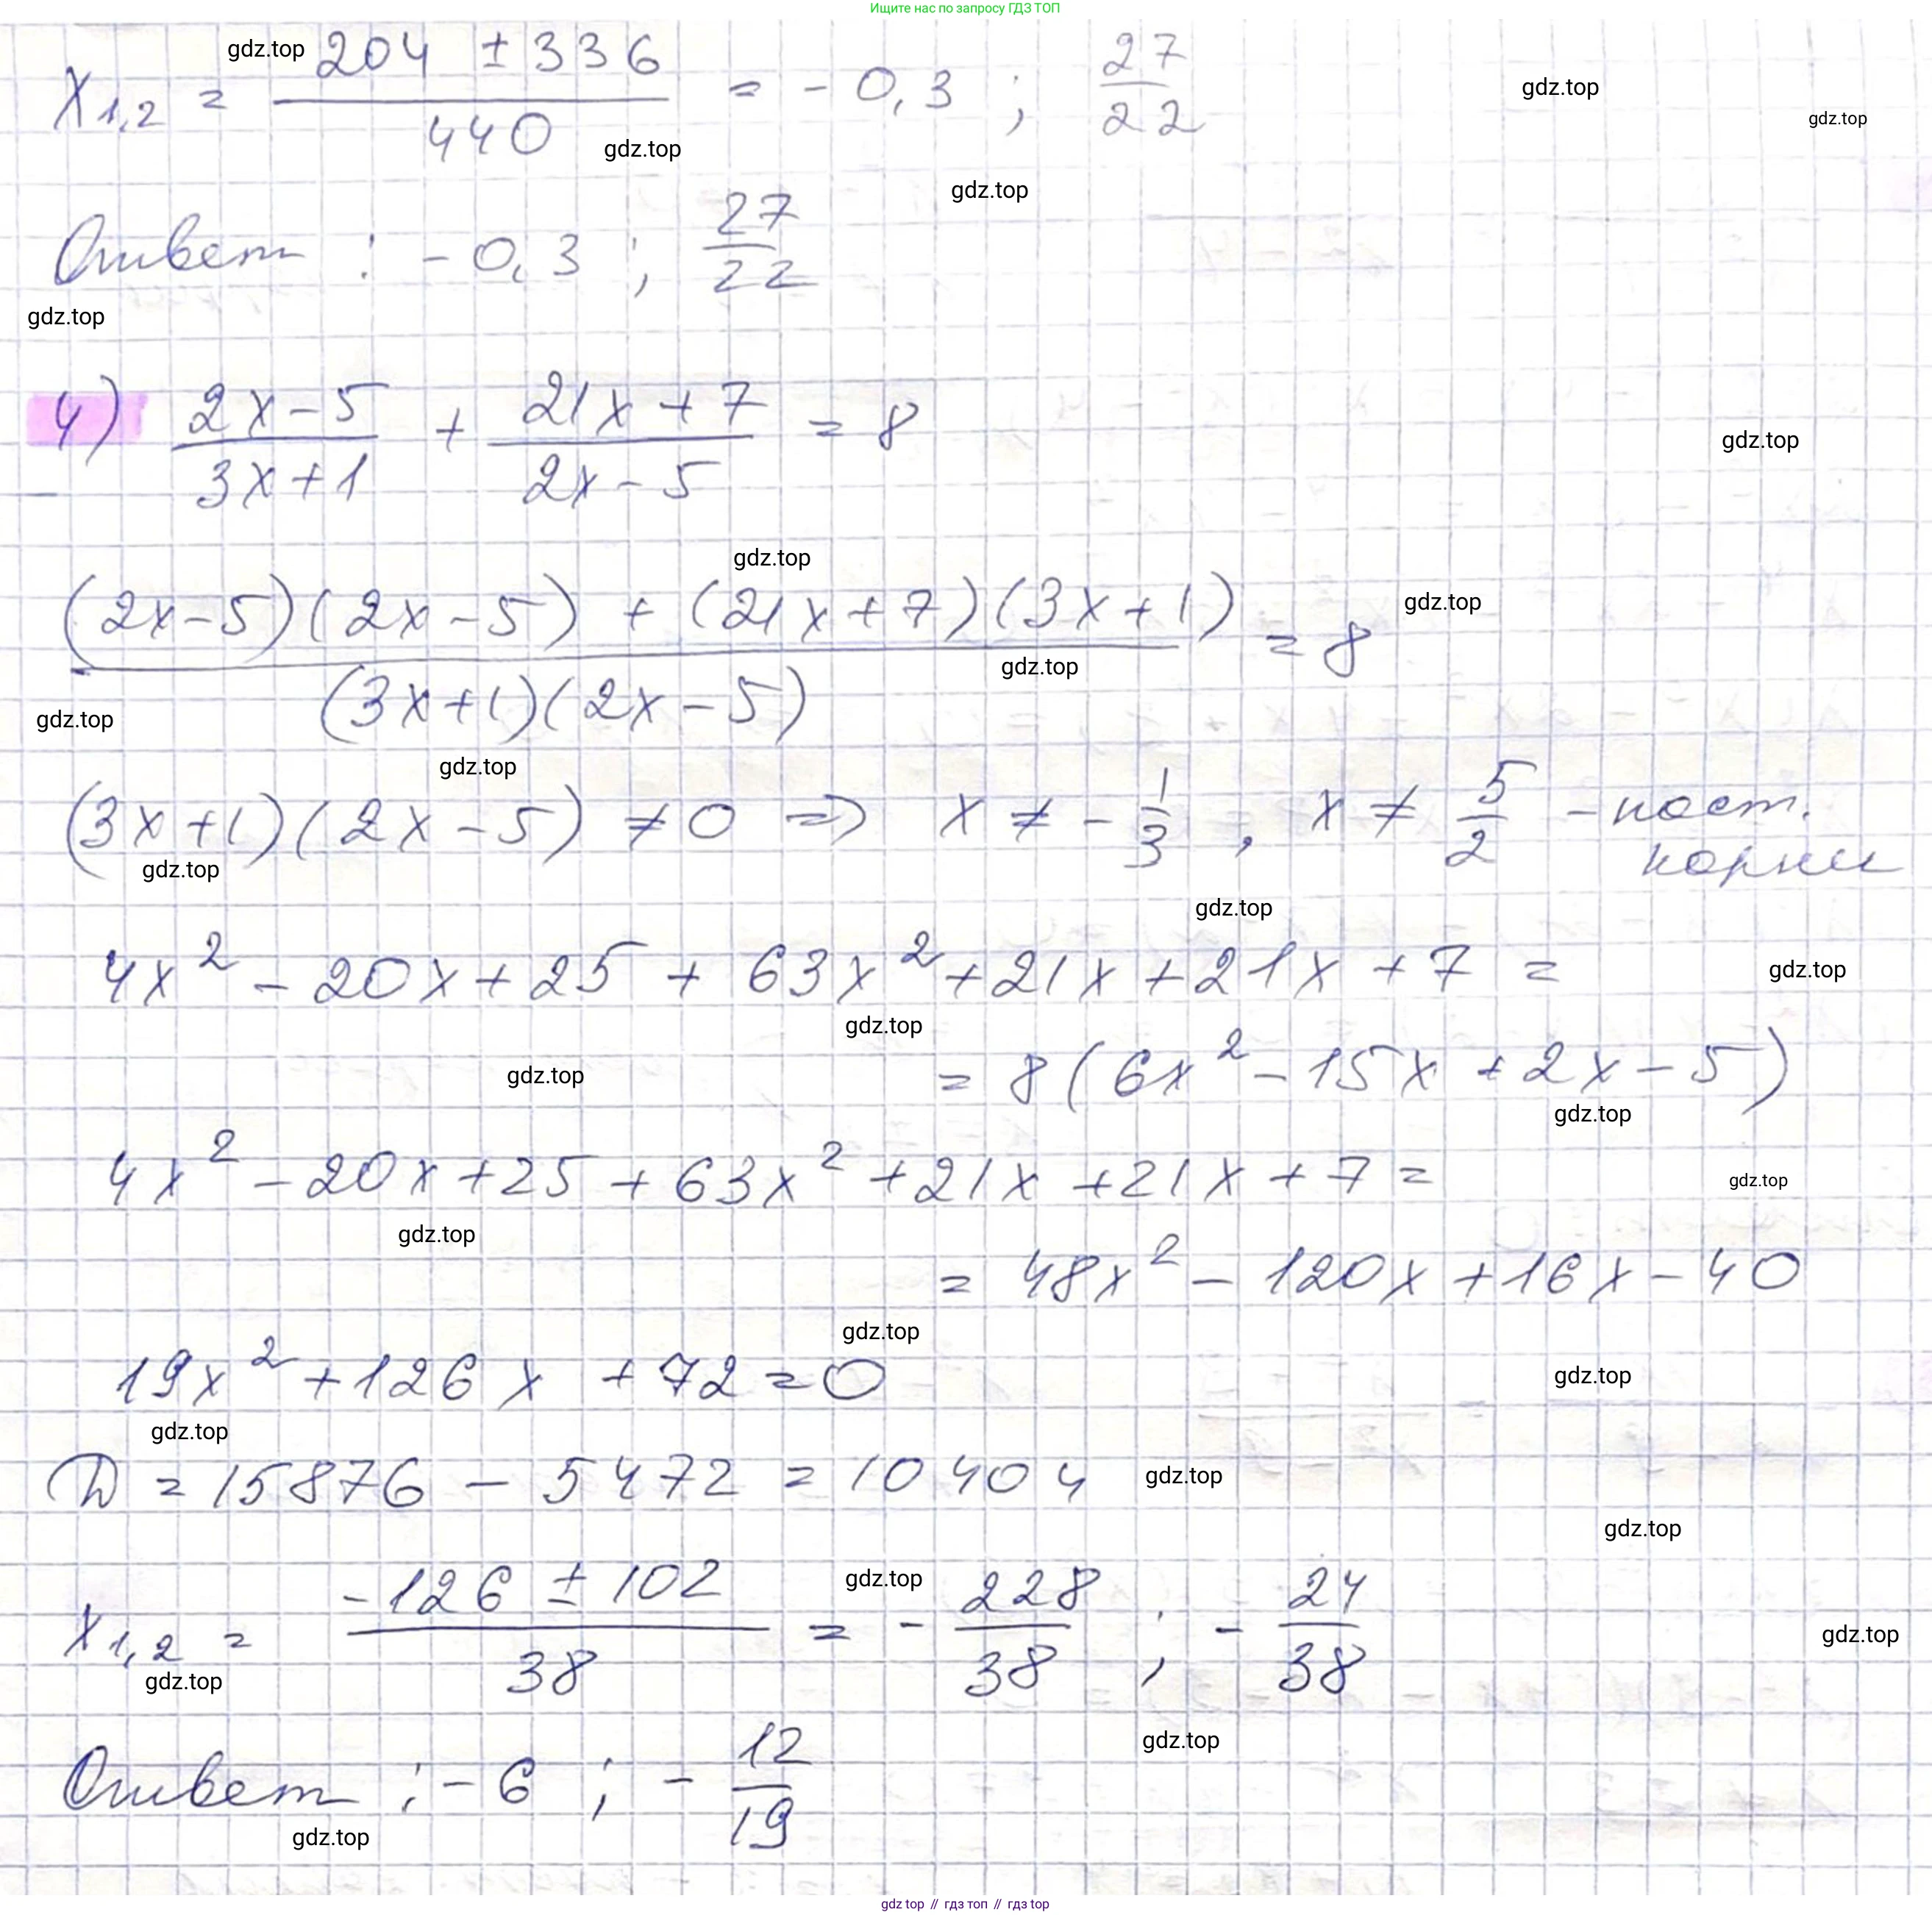 Ищите нас по запросу ГДЗ ТОП
gdz.top
x₁,₂ = (204 ± 336)/440 = -0,3 ; 27/22
gdz.top
gdz.top
gdz.top
gdz.top
Ответ : -0,3 ; 27/22
gdz.top
4) (2x-5)/(3x+1) + (21x+7)/(2x-5) = 8
gdz.top
gdz.top
((2x-5)(2x-5) + (21x+7)(3x+1))/((3x+1)(2x-5)) = 8
gdz.top
gdz.top
gdz.top
gdz.top
(3x+1)(2x-5) ≠ 0 => x ≠ -1/3 , x ≠ 5/2 - пост.
корни
gdz.top
gdz.top
4x² - 20x + 25 + 63x² + 21x + 21x + 7 =
gdz.top
gdz.top
gdz.top
= 8(6x² - 15x + 2x - 5)
gdz.top
4x² - 20x + 25 + 63x² + 21x + 21x + 7 =
gdz.top
gdz.top
= 48x² - 120x + 16x - 40
gdz.top
19x² + 126x + 72 = 0
gdz.top
gdz.top
D = 15876 - 5472 = 10404
gdz.top
gdz.top
x₁,₂ = (-126 ± 102)/38 = - 228/38 ; - 24/38
gdz.top
gdz.top
gdz.top
gdz.top
Ответ : -6 ; - 12/19
gdz.top
gdz top // гдз топ // гдз top